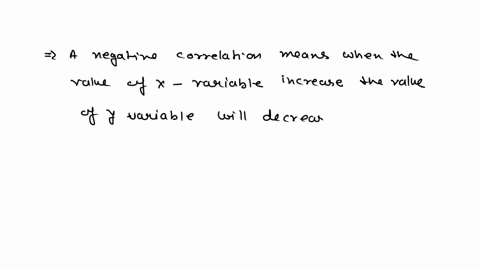 ⇒ A negative correlation means when the
value of x - variable increase the value
of y variable will decrea